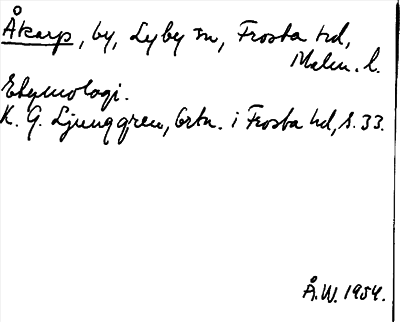 Åkarp, by, Lyby sn, Frosta hd,
Malm. l.
Etymologi.
K. G. Ljunggren, Ortn. i Frosta hd, s. 33.
Å.W. 1954.